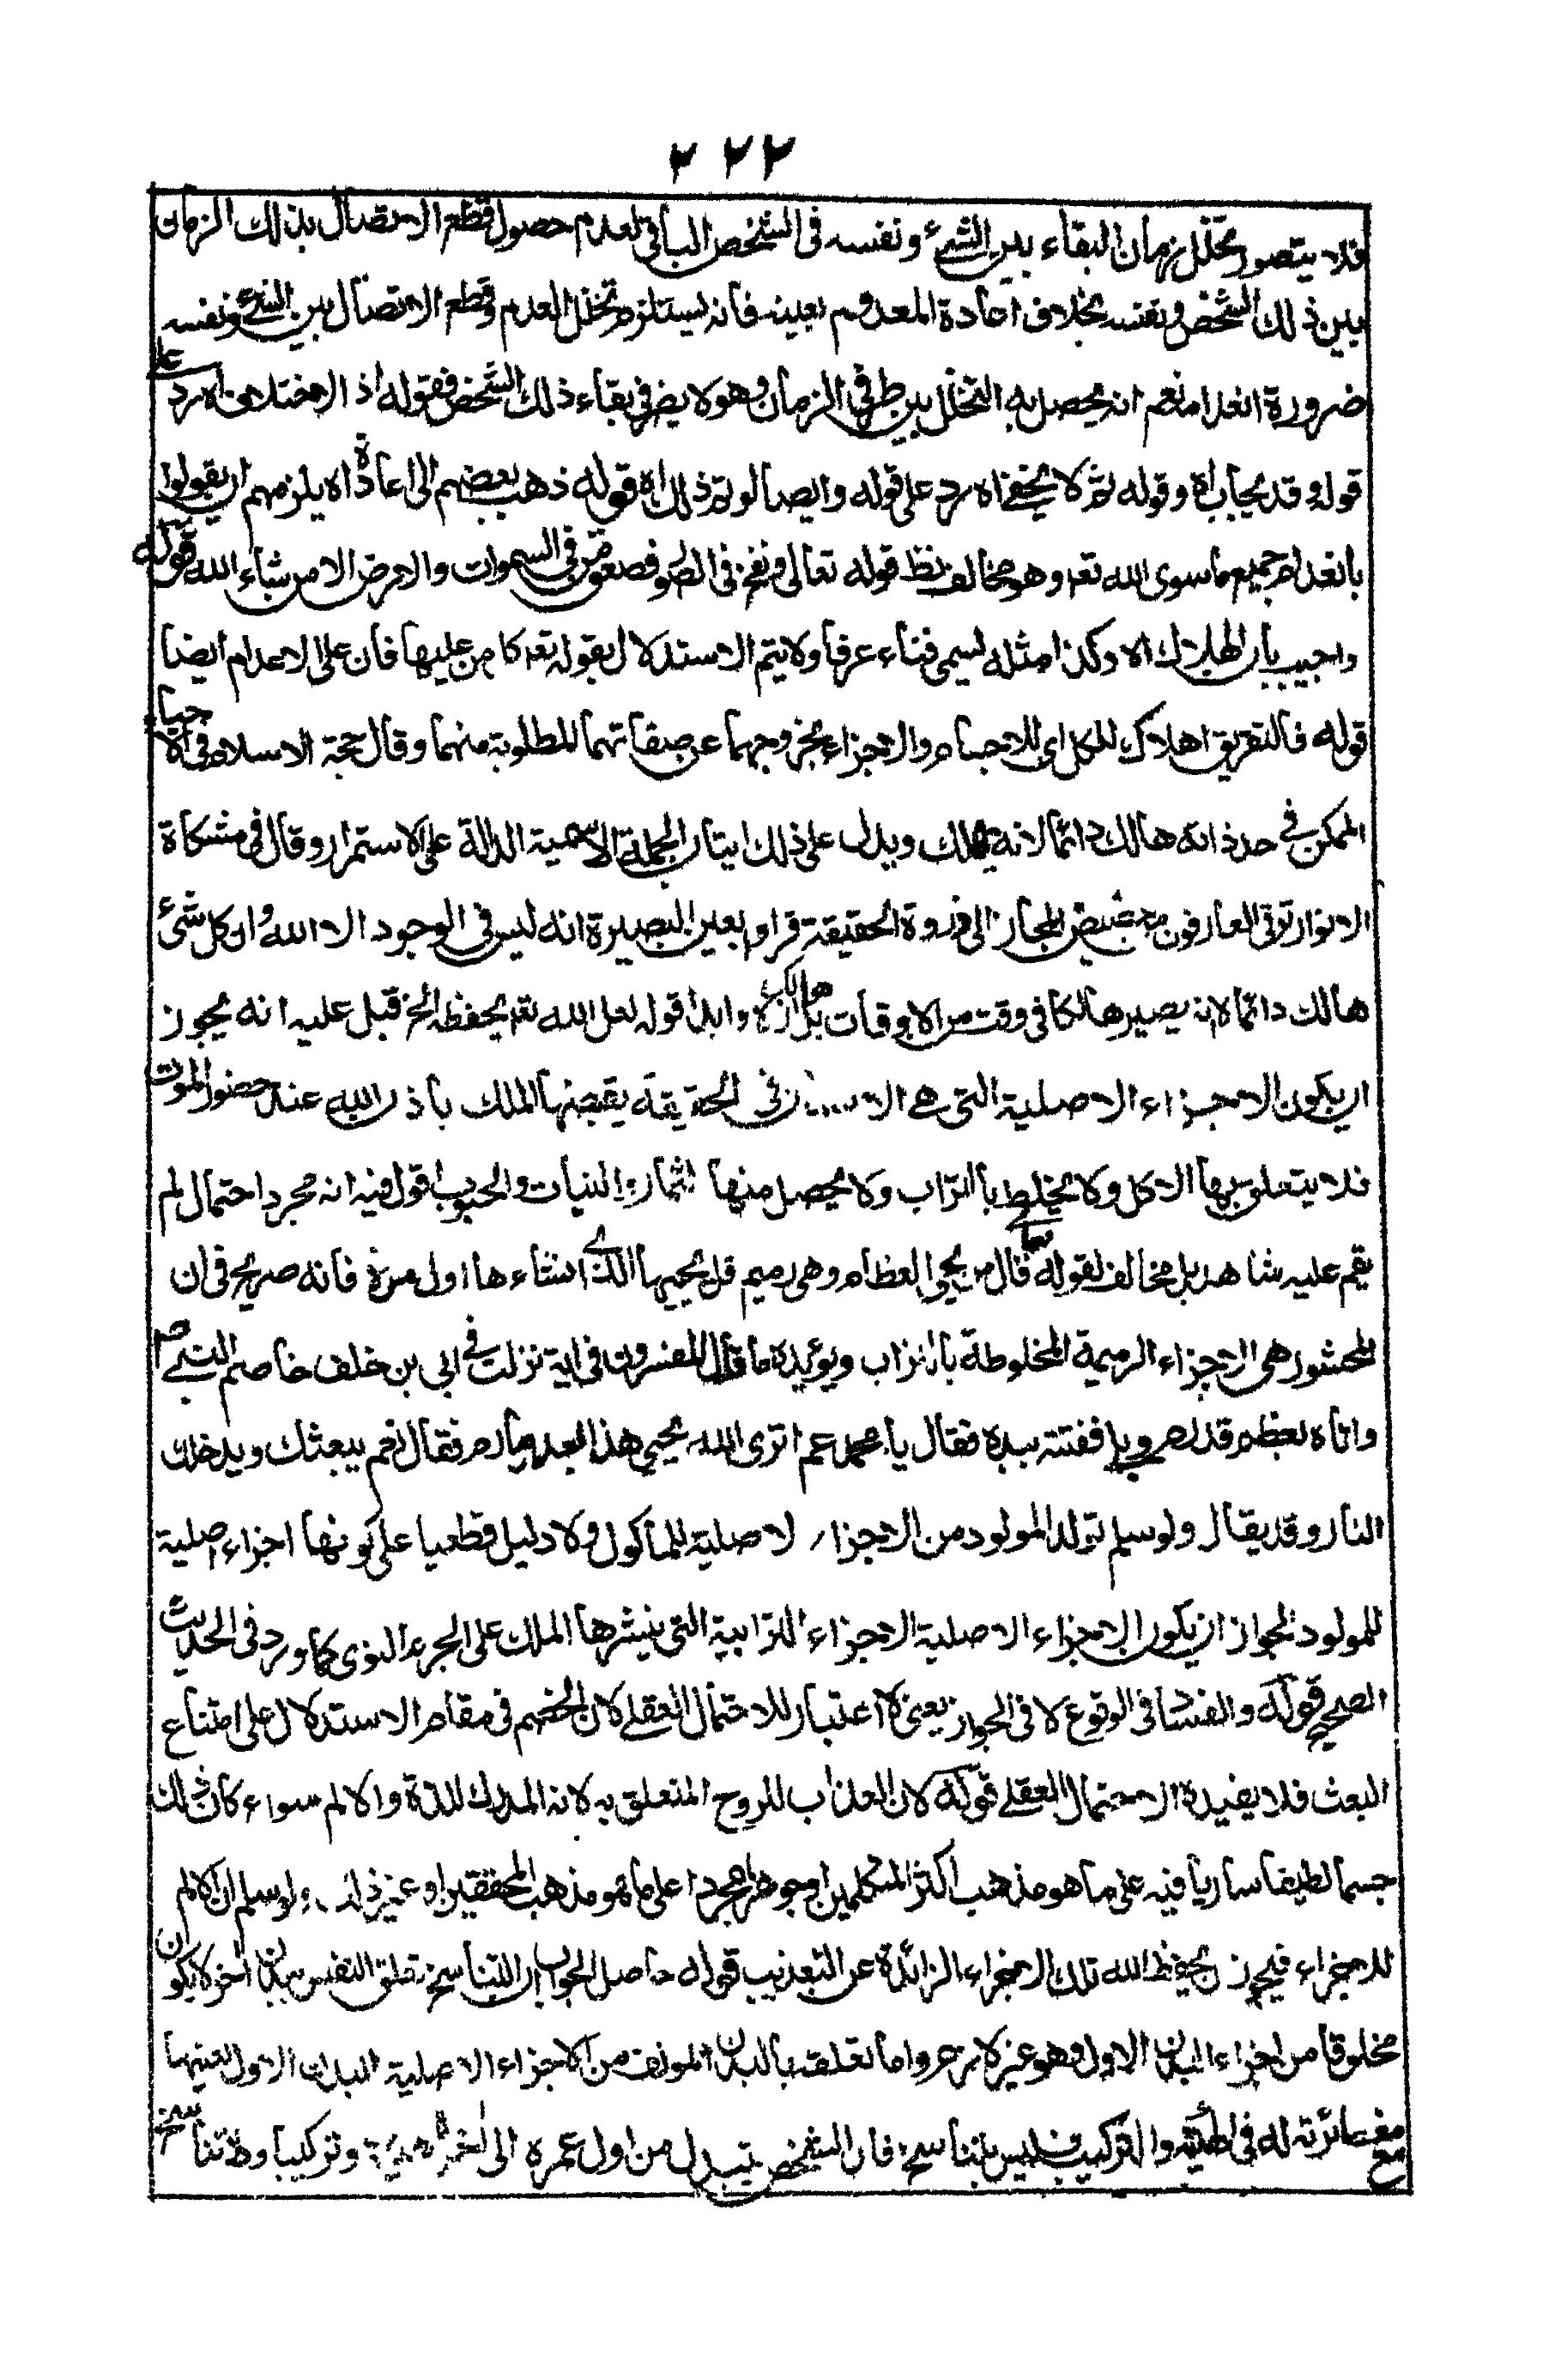 ٢٢٢
فلا يتصور تخلل زمان البقاء بين الشئ ونفسه فى الشخص الباقى لعدم حصول قطع الاتصال بذلك الزمان
بين ذلك الشخص ونفسه بخلاف اعادة المعدوم بعينه فانه يستلزم تخلل العدم وقطع الاتصال بين الشئ ونفسه
ضرورة انعدامه نعم انه يحصل به التخلل بين طرفى الزمان وهو لا يضر فى بقاء ذلك الشخص فقوله اذ الاختلاف اه رد على
قوله وقد يجاب اه وقوله ثم لا يخفى اه رد على قوله وايضا لو تم ذلك اه قوله ذهب بعضهم الى اعادة اه يلزمهم ان يقولوا
بانعدام جميع ما سوى الله تعه وهو مخالف نظ قوله تعالى ونفخ فى الصور فصعق من فى السموات والارض الا من شاء الله قوله
واجيب بان الهلاك اه وكذا مثله يسمى فناء عرفا ولا يتم الاستدلال بقوله تعه كل من عليها فان على الاعدام ايضا
قوله فالتفريق اهلاك للكل اى للاجسام والاجزاء بخروجهما عن صفاتهما المطلوبة منهما وقال حجة الاسلام فى الاحيا
الممكن فى حد ذاته هالك دائما لانه يهلك ويدل على ذلك ايثار الجملة الاسمية الدالة على الاستمرار وقال فى مشكاة
الانوار ترقى العارفون من حضيض المجاز الى ذروة الحقيقة فراوا بعين البصيرة انه ليس فى الوجود الا الله وان كل شئ
هالك دائما لا انه يصير هالكا فى وقت من الاوقات بل هالك ازلا وابدا قوله لعل الله تعه يحفظه الخ قيل عليه انه يجوز
ان يكون الاجزاء الاصلية التى هى فى الحقيقة يقبضها الملك باذن الله عند حضور الموت
فلا يتعلق بها الاكل ولا يختلط بالتراب ولا يحصل منها الثمار والنبات والحبوب اقول فيه انه مجرد احتمال لم
يقم عليه شاهد بل مخالف لقوله تعالى قال من يحيى العظام وهى رميم قل يحييها الذى انشاءها اول مرة فانه صريح فى ان
المحشور هى الاجزاء الرميمة المخلوطة بالتراب ويؤيده ما قال المفسرون فى اية نزلت فى ابى بن خلف خاصم النبى ص
واتاه بعظم قد رم وبلى ففتته بيده فقال يا محمد عم اترى الله يحيى هذا بعد ما رم فقال نعم يبعثك ويدخلك
النار وقد يقال ولو سلم تولد المولود من الاجزاء لاصلية للماكول ولا دليل قطعيا على كونها اجزاء اصلية
للمولود لجواز ان يكون الاجزاء الاصلية الاجزاء الترابية التى ينشرها الملك على الجرم النوى كما ورد فى الحديث
الصحيح قوله والفساد فى الوقوع لا فى الجواز يعنى لا اعتبار للاحتمال العقلى لان الخصم فى مقام الاستدلال على امتناع
البعث فلا يفيده الاحتمال العقلى قوله لان العذاب للروح المتعلق به لانه المدرك للذة والالم سواء كان ذلك
جسما لطيفا ساريا فيه على ما هو مذهب اكثر المتكلمين او جوهرا مجردا على ما هو مذهب المحققين او غير ذلك ولو سلم ان الالم
للاجزاء فيجوز ان يحفظ الله تلك الاجزاء الزائدة عن التعذيب قوله حاصل الجواب ان التناسخ تعلق النفس ببدن اخر لا يكون
مخلوقا من اجزاء البدن الاول وهو غير لازم واما تعلقه بالبدن المؤلف من الاجزاء الاصلية للبدن الاول بعينها
مع مغائرته له فى الهيئة والتركيب فليس بتناسخ فان الشخص يتبدل من اول عمره الى اخره هيئة وتركيبا ولا تناسخ